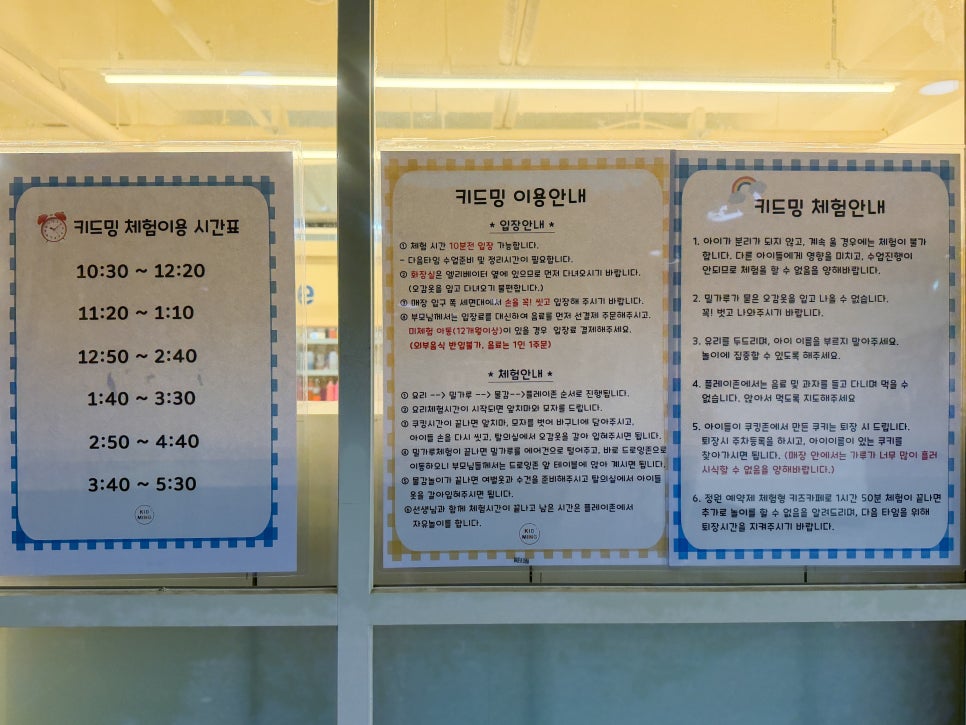 키드밍 체험이용 시간표
10:30 ~ 12:20
11:20 ~ 1:10
12:50 ~ 2:40
1:40 ~ 3:30
2:50 ~ 4:40
3:40 ~ 5:30
KID
MING
키드밍 이용안내
* 입장안내 *
① 체험 시간 10분전 입장 가능합니다.
- 다음타임 수업준비 및 정리시간이 필요합니다.
② 화장실은 엘리베이터 옆에 있으므로 먼저 다녀오시기 바랍니다.
(오감옷을 입고 다녀오기 불편합니다.)
③ 매장 입구 쪽 세면대에서 손을 꼭! 씻고 입장해 주시기 바랍니다.
④ 부모님께서는 입장료를 대신하여 음료를 먼저 선결제 주문해주시고,
미체험 아동(12개월이상)이 있을 경우 입장료 결제해주세요.
(외부음식 반입불가, 음료는 1인 1주문)
* 체험안내 *
① 요리 --> 밀가루 --> 물감-->플레이존 순서로 진행됩니다.
② 요리체험시간이 시작되면 앞치마와 모자를 드립니다.
③ 쿠킹시간이 끝나면 앞치마, 모자를 벗어 바구니에 담아주시고,
아이들 손을 다시 씻고, 탈의실에서 오감옷을 갈아 입혀주시면 됩니다.
④ 밀가루체험이 끝나면 밀가루를 에어건으로 털어주고, 바로 드로잉존으로
이동하오니 부모님들께서는 드로잉존 앞 테이블에 앉아 계시면 됩니다.
⑤ 물감놀이가 끝나면 여벌옷과 수건을 준비해주시고 탈의실에서 아이들
옷을 갈아입혀주시면 됩니다.
⑥선생님과 함께 체험시간이 끝나고 남은 시간은 플레이존에서
자유놀이를 합니다.
KID
MING
키드밍 체험안내
1. 아이가 분리가 되지 않고, 계속 울 경우에는 체험이 불가
합니다. 다른 아이들에게 영향을 미치고, 수업진행이
안되므로 체험을 할 수 없음을 양해바랍니다.
2. 밀가루가 묻은 오감옷을 입고 나올 수 없습니다.
꼭! 벗고 나와주시기 바랍니다.
3. 유리를 두드리며, 아이 이름을 부르지 말아주세요.
놀이에 집중할 수 있도록 해주세요.
4. 플레이존에서는 음료 및 과자를 들고 다니며 먹을 수
없습니다. 앉아서 먹도록 지도해주세요
5. 아이들이 쿠킹존에서 만든 쿠키는 퇴장 시 드립니다.
퇴장시 주차등록을 하시고, 아이이름이 있는 쿠키를
찾아가시면 됩니다. (매장 안에서는 가루가 너무 많이 흘러
시식할 수 없음을 양해바랍니다.)
6. 정원 예약제 체험형 키즈카페로 1시간 50분 체험이 끝나면
추가로 놀이를 할 수 없음을 알려드리며, 다음 타임을 위해
퇴장시간을 지켜주시기 바랍니다.